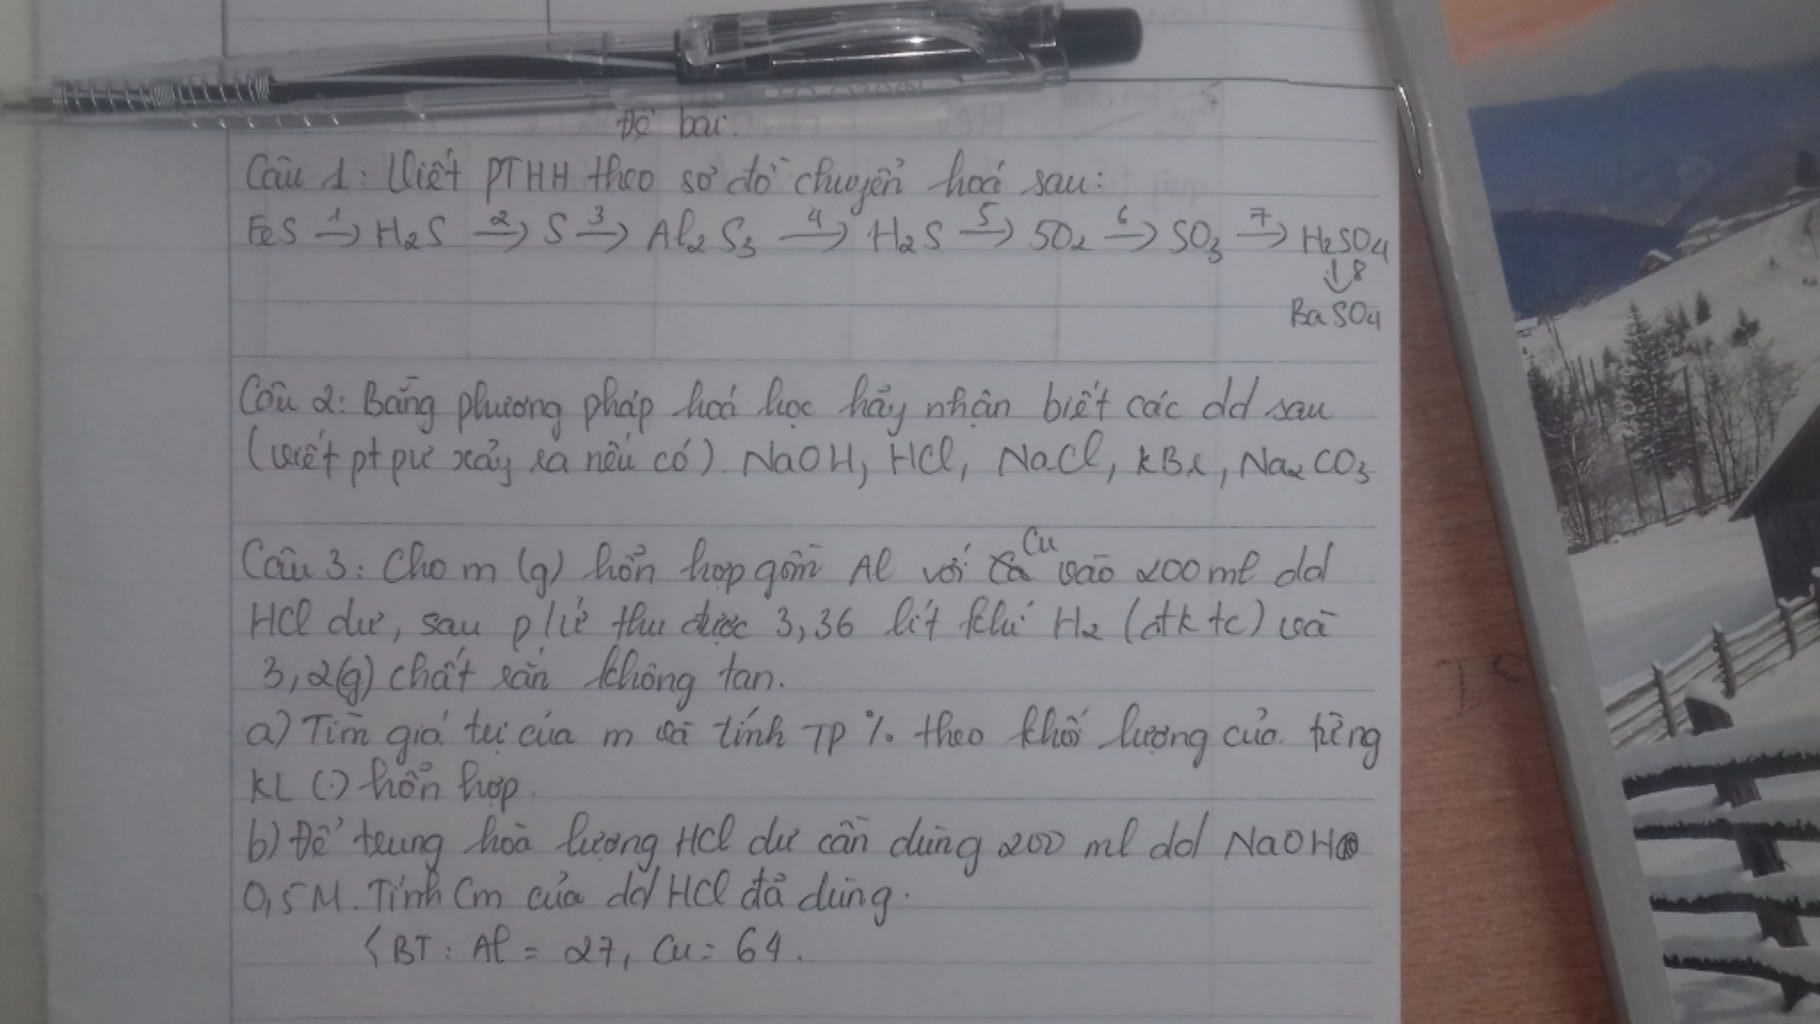 Đề bài.
Câu 1: Viết PTHH theo sơ đồ chuyển hoá sau:
FeS 1→ H₂S 2→ S 3→ Al₂S₃ 4→ H₂S 5→ SO₂ 6→ SO₃ 7→ H₂SO₄
↓8
BaSO₄
Câu 2: Bằng phương pháp hoá học hãy nhận biết các dd sau
(viết pt pư xảy ra nếu có). NaOH, HCl, NaCl, KBr, Na₂CO₃
Câu 3: Cho m (g) hỗn hợp gồm Al với Cu vào 200ml dd
HCl dư, sau p/ứ thu được 3,36 lít khí H₂ (đktc) và
3,2(g) chất rắn không tan.
a) Tìm giá trị của m và tính TP % theo khối lượng của từng
KL (.) hỗn hợp.
b) Để trung hoà lượng HCl dư cần dùng 200 ml dd NaOH
0,5M. Tính Cm của dd HCl đã dùng.
(BT: Al = 27, Cu = 64.